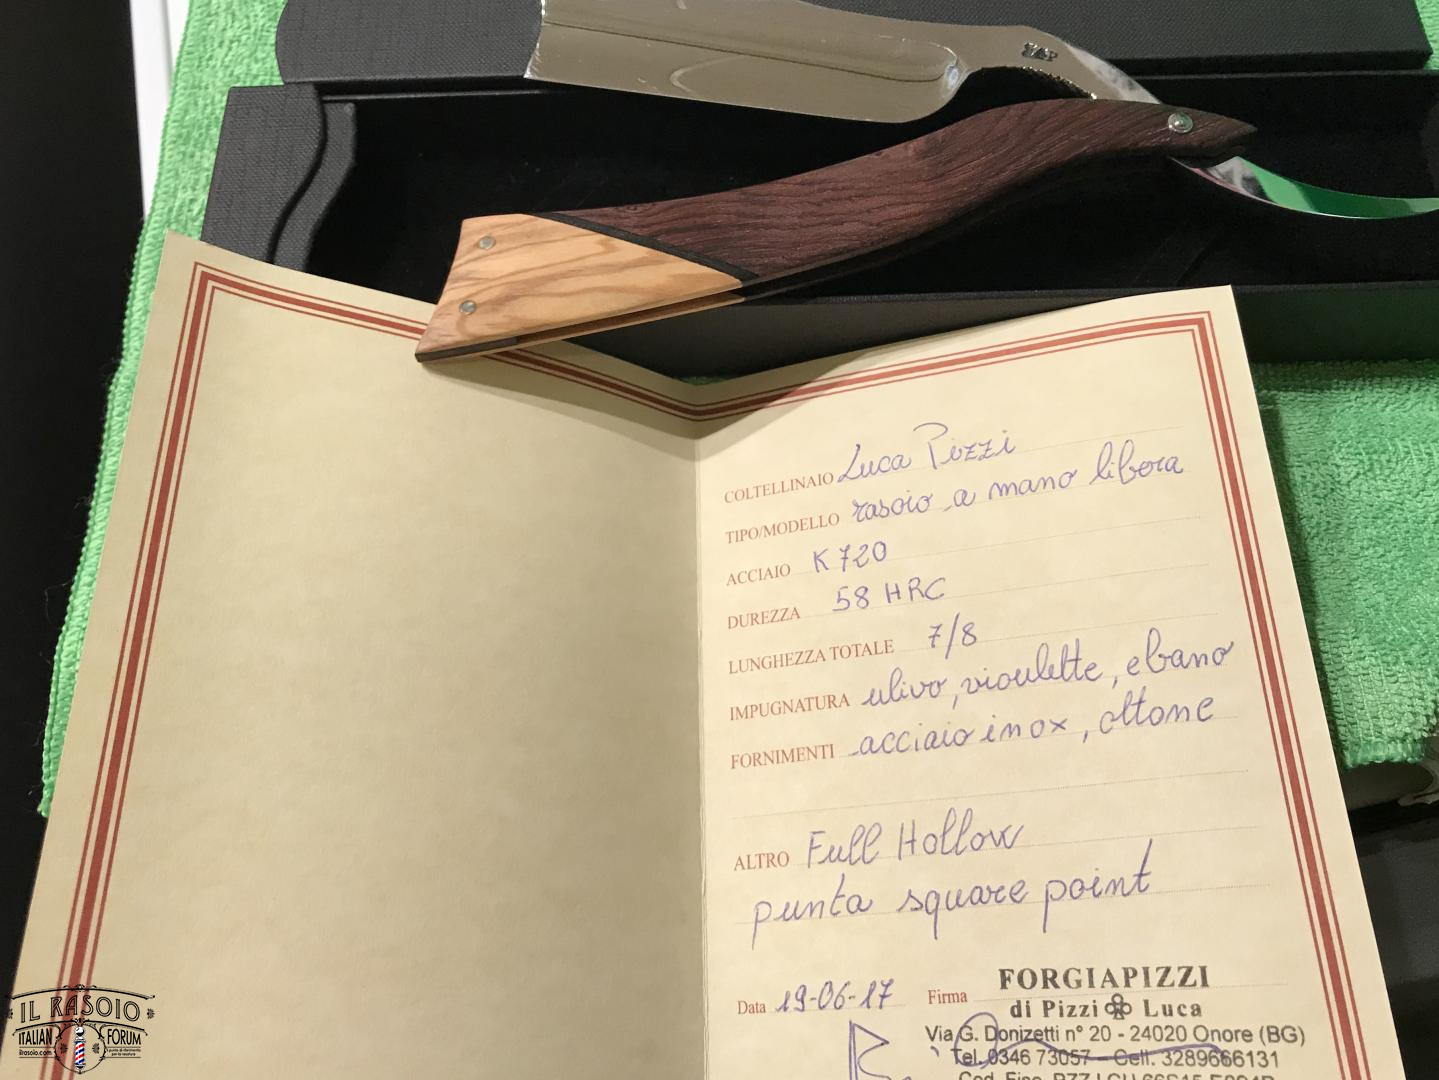 COLTELLINAIO Luca Pizzi
TIPO/MODELLO rasoio a mano libera
ACCIAIO K720
DUREZZA 58 HRC
LUNGHEZZA TOTALE 7/8
IMPUGNATURA ulivo, vioulette, ebano
FORNIMENTI acciaio inox, ottone
ALTRO Full Hollow
punta square point
Data 19-06-17 Firma
FORGIAPIZZI
di Pizzi Luca
Via G. Donizetti n° 20 - 24020 Onore (BG)
Tel. 0346 73057 - Cell. 3289666131
IL RASOIO
ITALIAN FORUM
ilrasoio.com